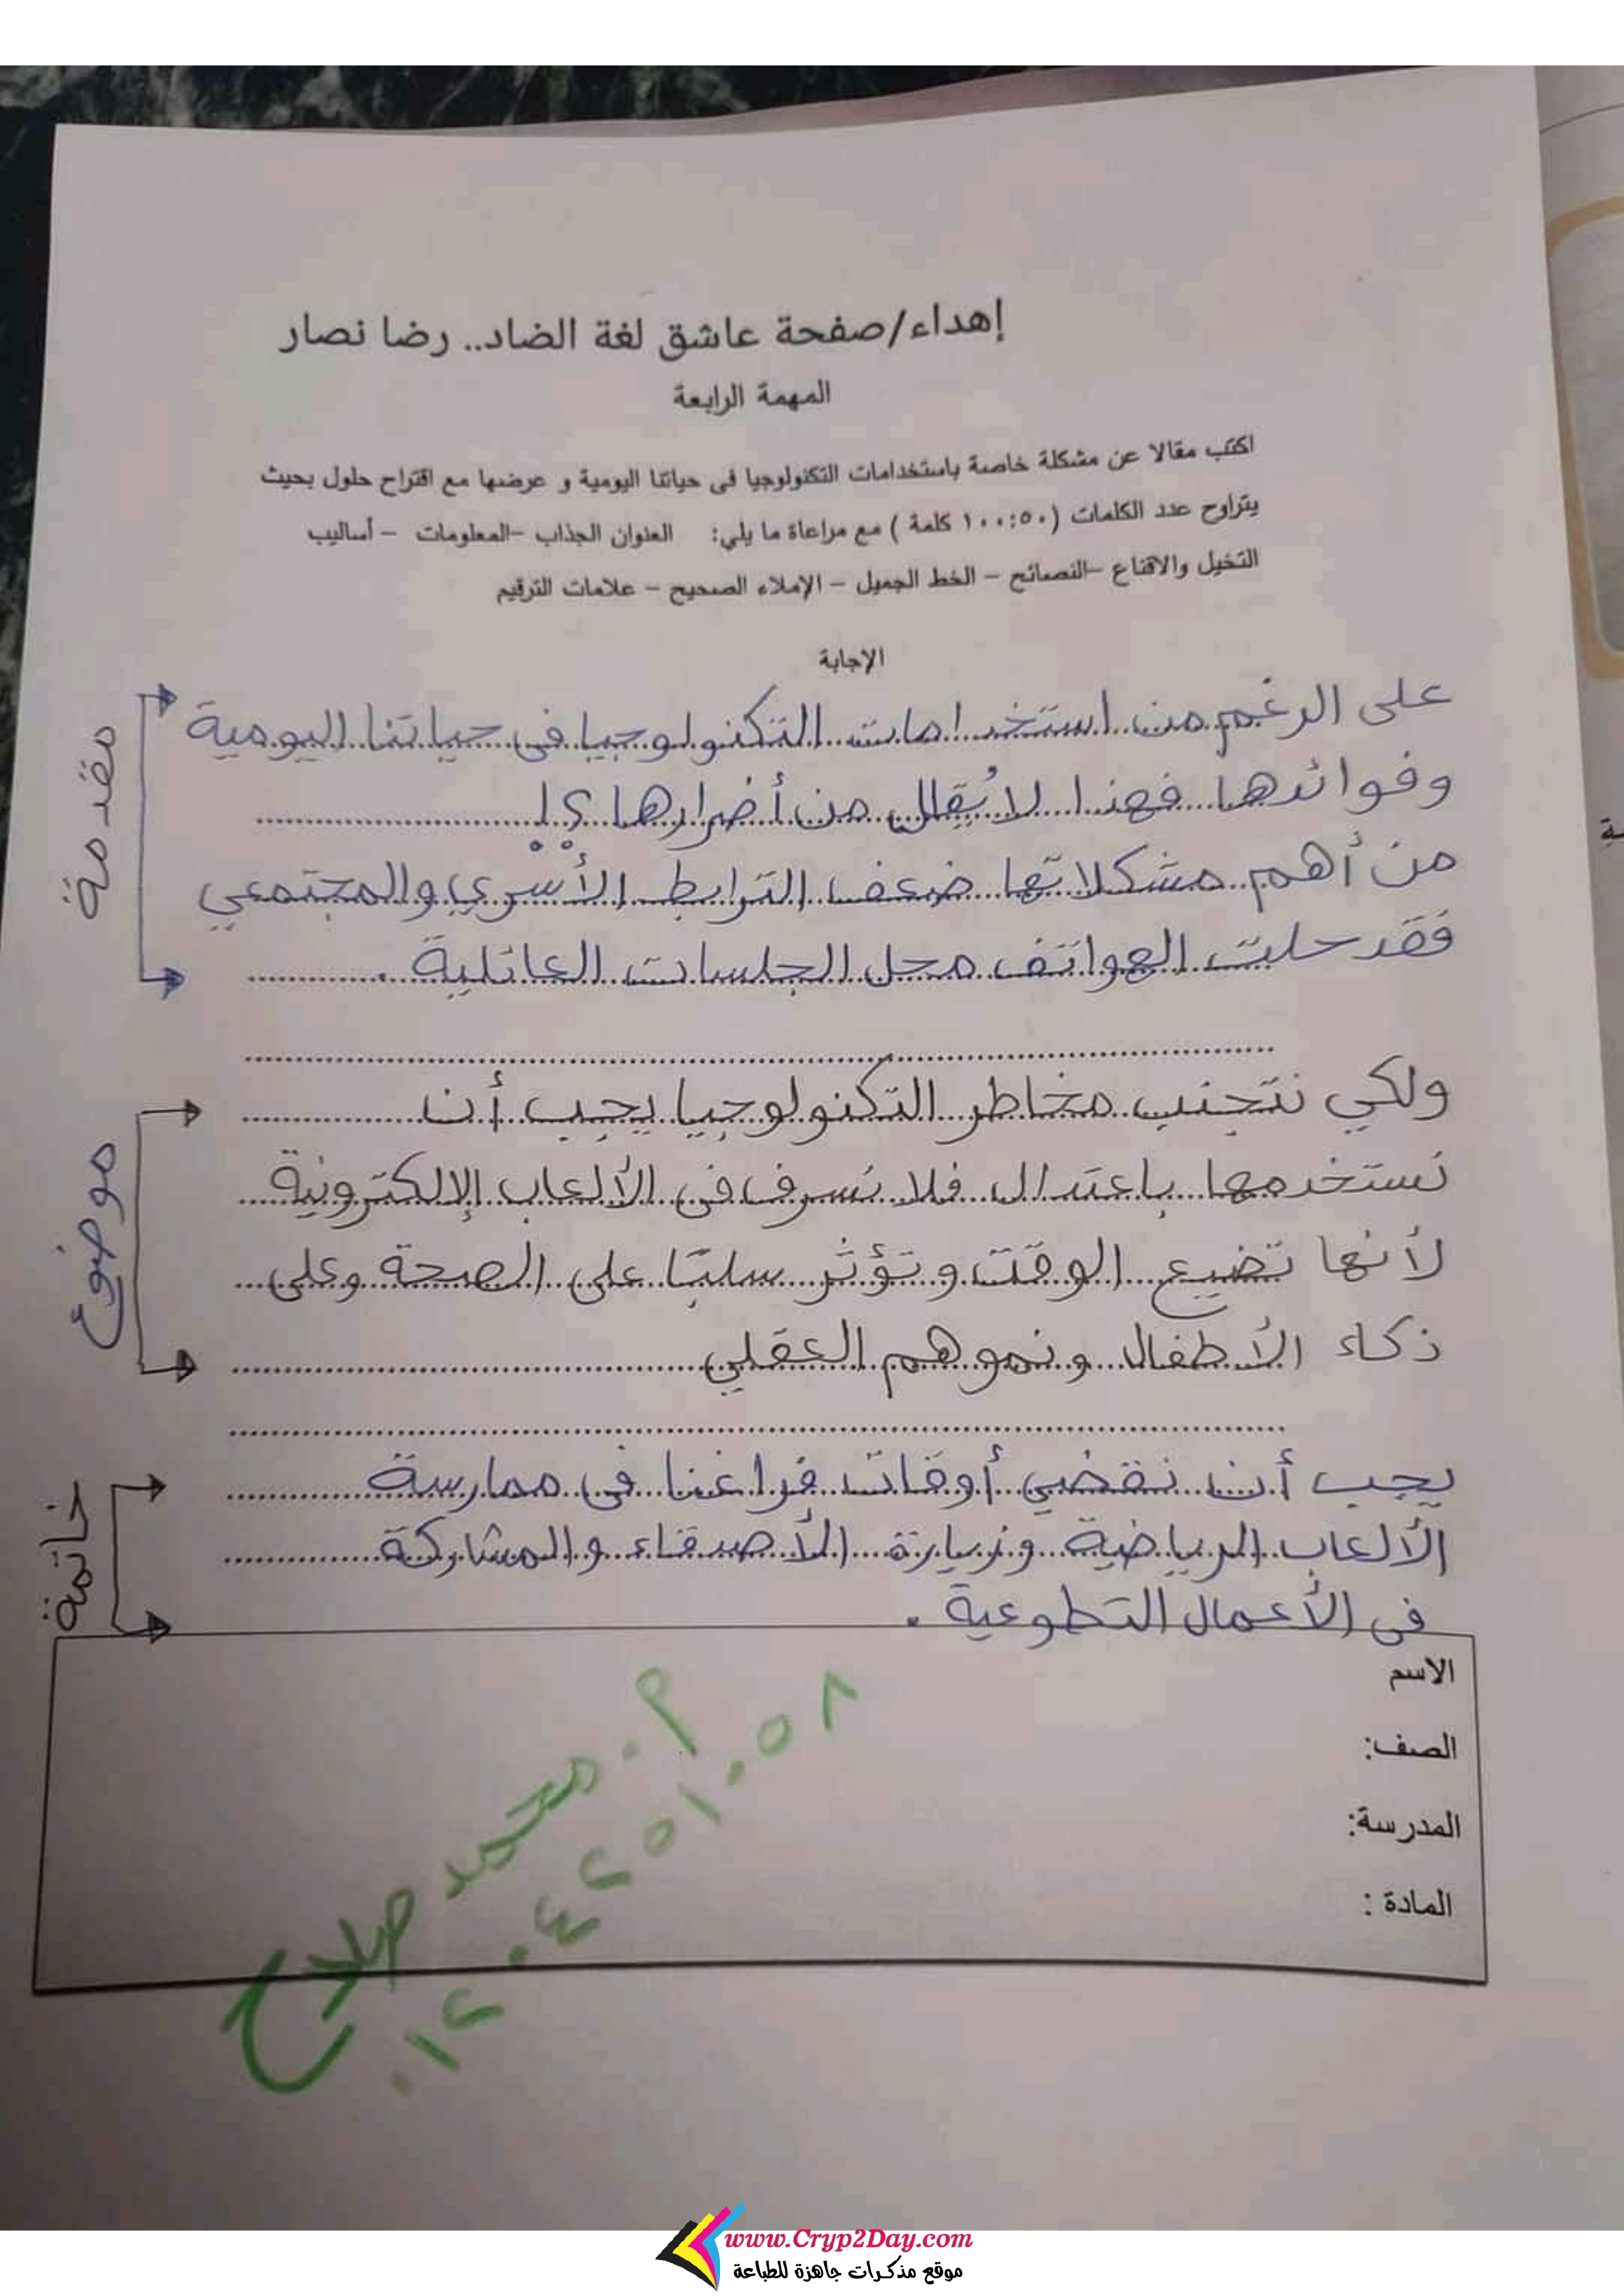 إهداء/صفحة عاشق لغة الضاد.. رضا نصار
المهمة الرابعة
اكتب مقالا عن مشكلة خاصة باستخدامات التكنولوجيا فى حياتنا اليومية و عرضها مع اقتراح حلول بحيث
يتراوح عدد الكلمات (٥٠:١٠٠ كلمة ) مع مراعاة ما يلي: العنوان الجذاب –المعلومات – أساليب
التخيل والاقناع –النصائح – الخط الجميل – الإملاء الصحيح – علامات الترقيم
الإجابة
مقدمة
على الرغم من استخدامات التكنولوجيا فى حياتنا اليومية
وفوائدها فهذا لا يُقلل من أضرارها ؟!
من أهم مشكلاتها ضعف الترابط الأسري والمجتمعي
فقد حلت الهواتف محل الجلسات العائلية .
موضوع
ولكي نتجنب مخاطر التكنولوجيا يجب أن
نستخدمها باعتدال فلا نسرف فى الألعاب الإلكترونية
لأنها تضيع الوقت وتؤثر سلبًا على الصحة وعلى
ذكاء الأطفال ونموهم العقلي
خاتمة
يجب أن نقضي أوقات فراغنا فى ممارسة
الألعاب الرياضية وزيارة الأصدقاء والمشاركة
فى الأعمال التطوعية .
الاسم
الصف:
المدرسة:
المادة :
م. محمد صلاح
www.Cryp2Day.com
موقع مذكرات جاهزة للطباعة